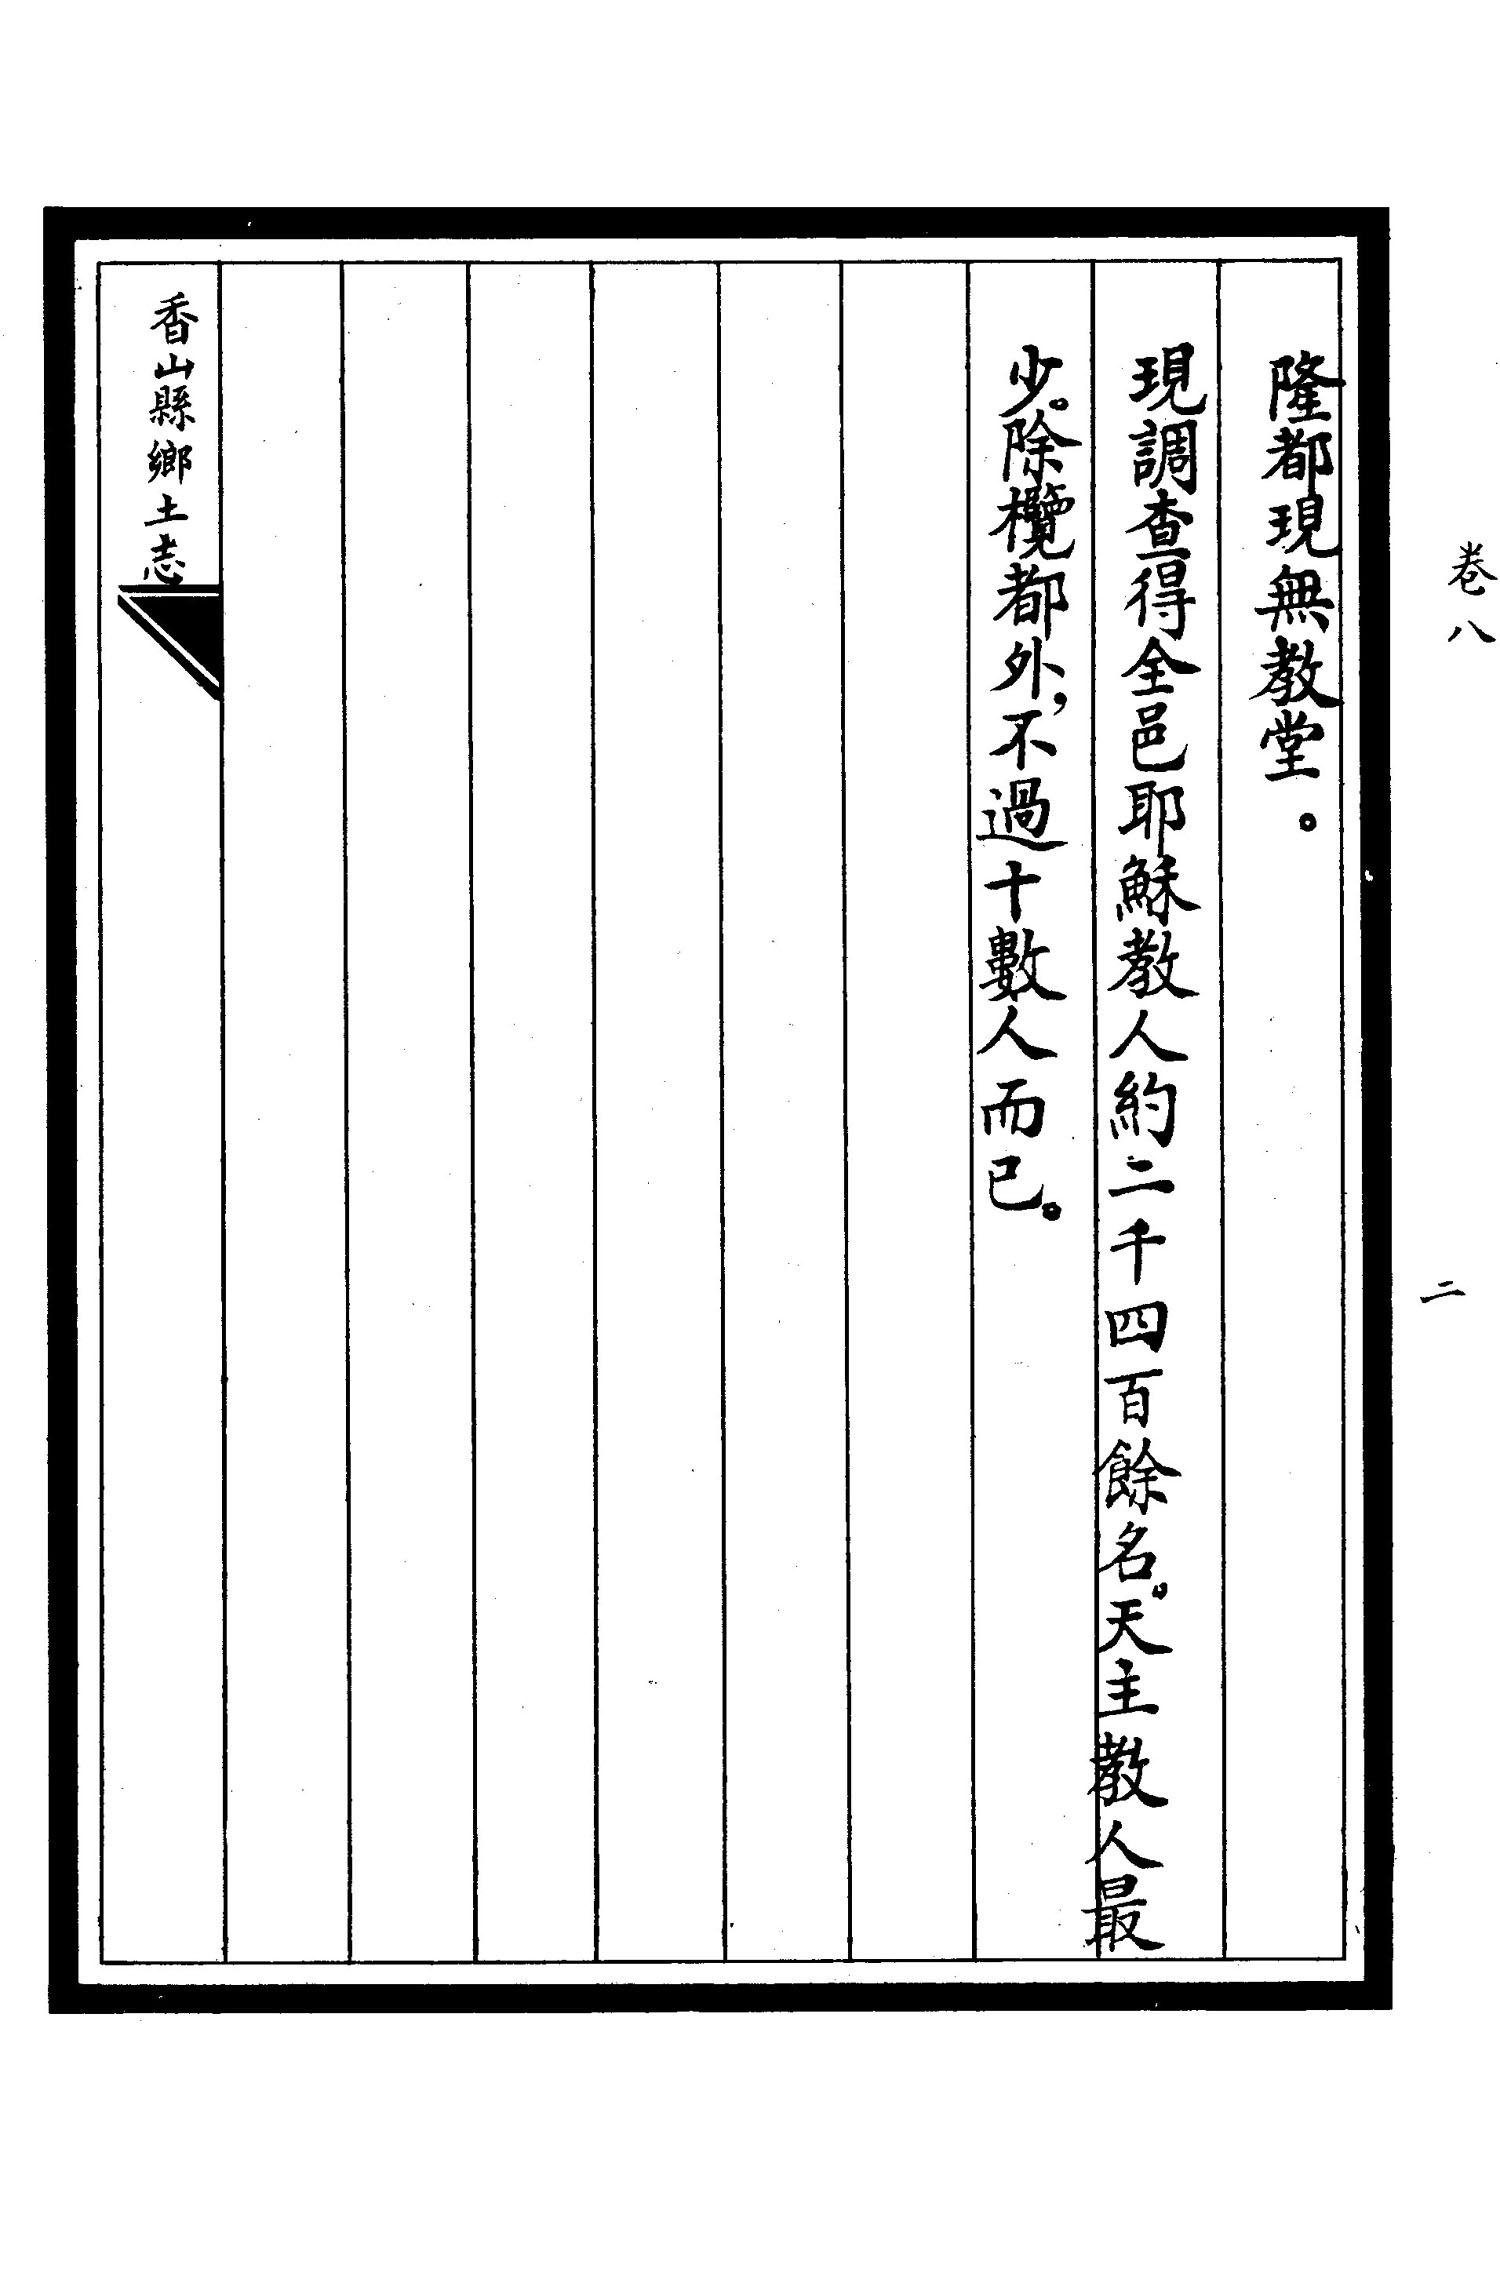 卷八
二
隆都現無教堂。
現調查得全邑耶穌教人約二千四百餘名。天主教人最
少。除欖都外，不過十數人而已。
香山縣鄉土志